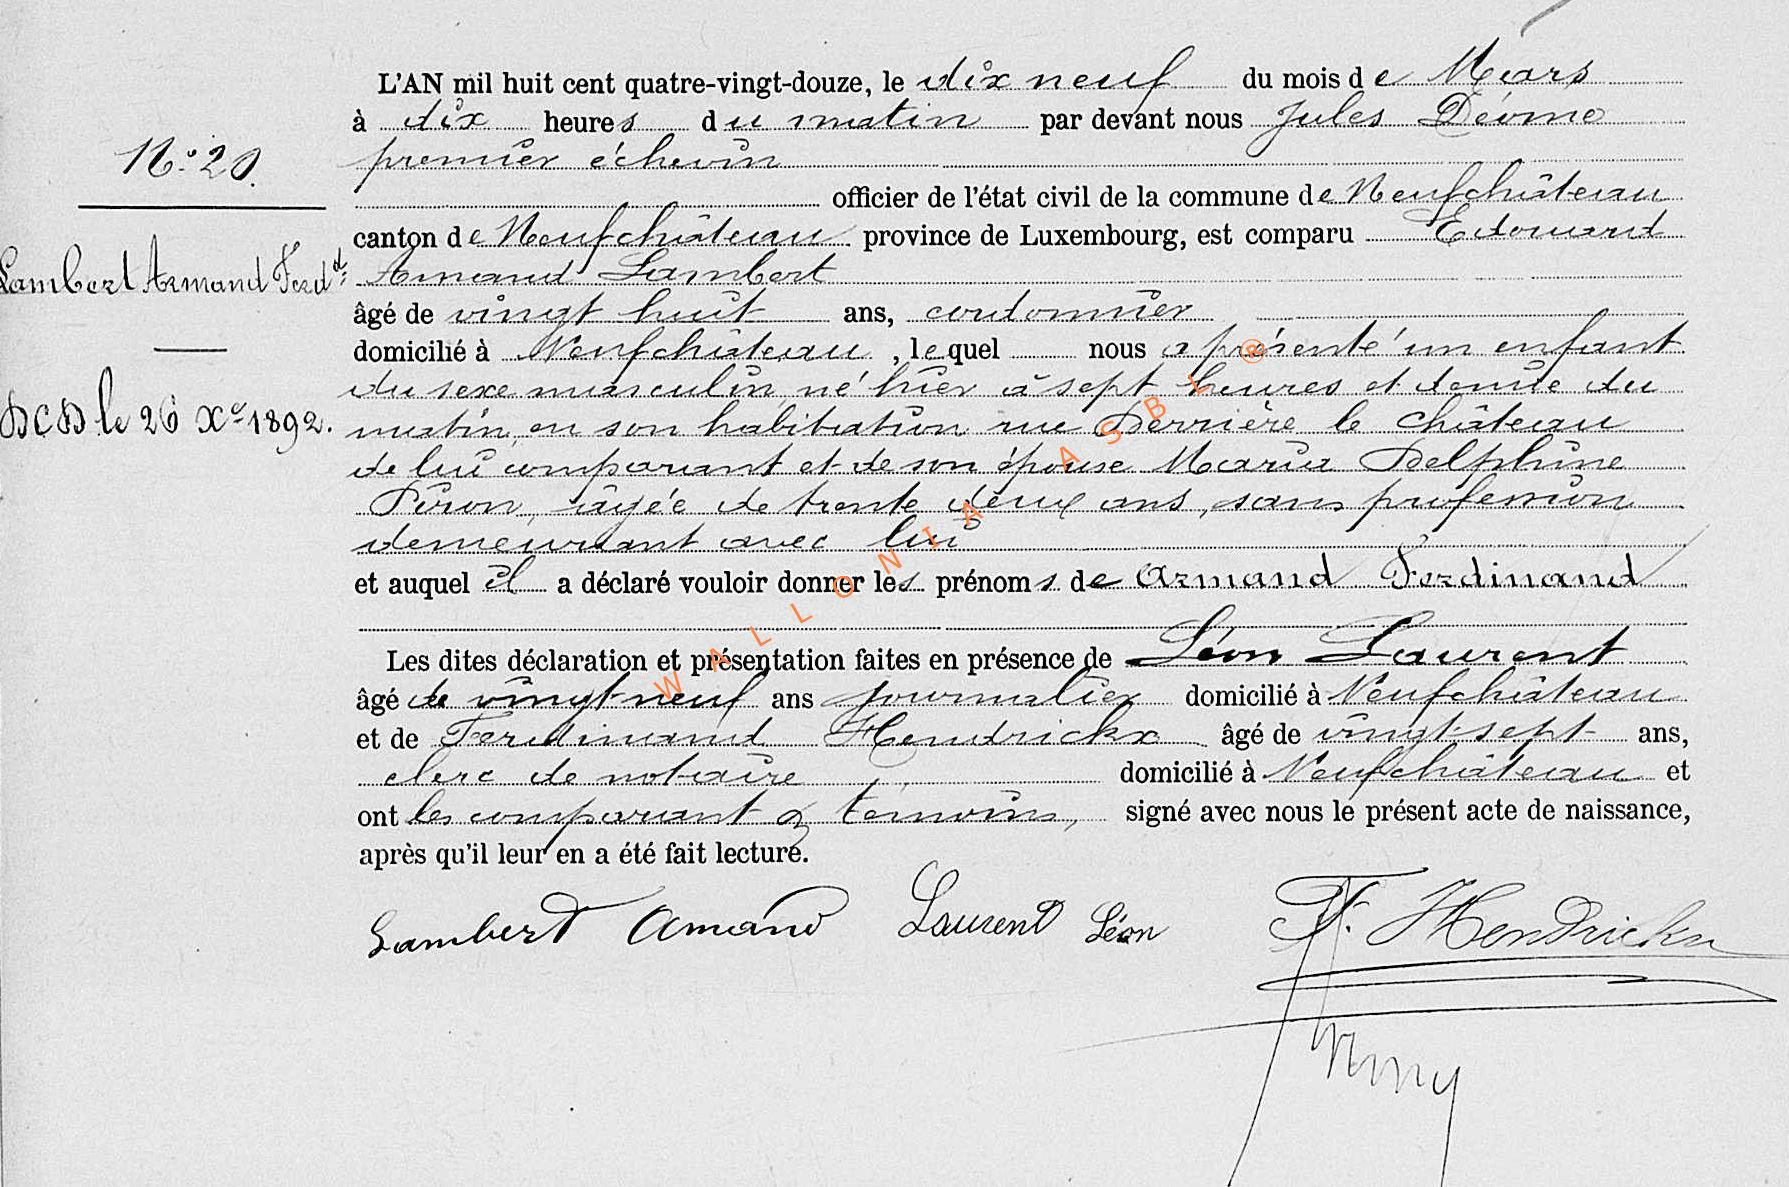 L'AN mil huit cent quatre-vingt-douze, le dix neuf du mois de Mars
à dix heures du matin par devant nous Jules
premier échevin
officier de l'état civil de la commune de Neufchâteau
canton de Neufchâteau province de Luxembourg, est comparu Edouard
Armand Lambert
âgé de vingt huit ans, cordonnier
domicilié à Neufchâteau, lequel nous a présenté un enfant
du sexe masculin né hier à sept heures et demie du
matin, en son habitation rue Derrière le château
de lui comparant et de son épouse Maria Delphine
Piron, âgée de trente deux ans, sans profession
demeurant avec lui
et auquel il a déclaré vouloir donner les prénoms de Armand Ferdinand
Les dites déclaration et présentation faites en présence de Léon Laurent
âgé de vingt-neuf ans journalier domicilié à Neufchâteau
et de Ferdinand Hendrickx âgé de vingt-sept ans,
clerc de notaire domicilié à Neufchâteau et
ont les comparant & témoins, signé avec nous le présent acte de naissance,
après qu'il leur en a été fait lecture.
Lambert Armand Laurent Léon F. Hendrickx
N° 20.
Lambert Armand Ferdd:
DCD le 26 Xe 1892.
WALLONIA ASBL ®